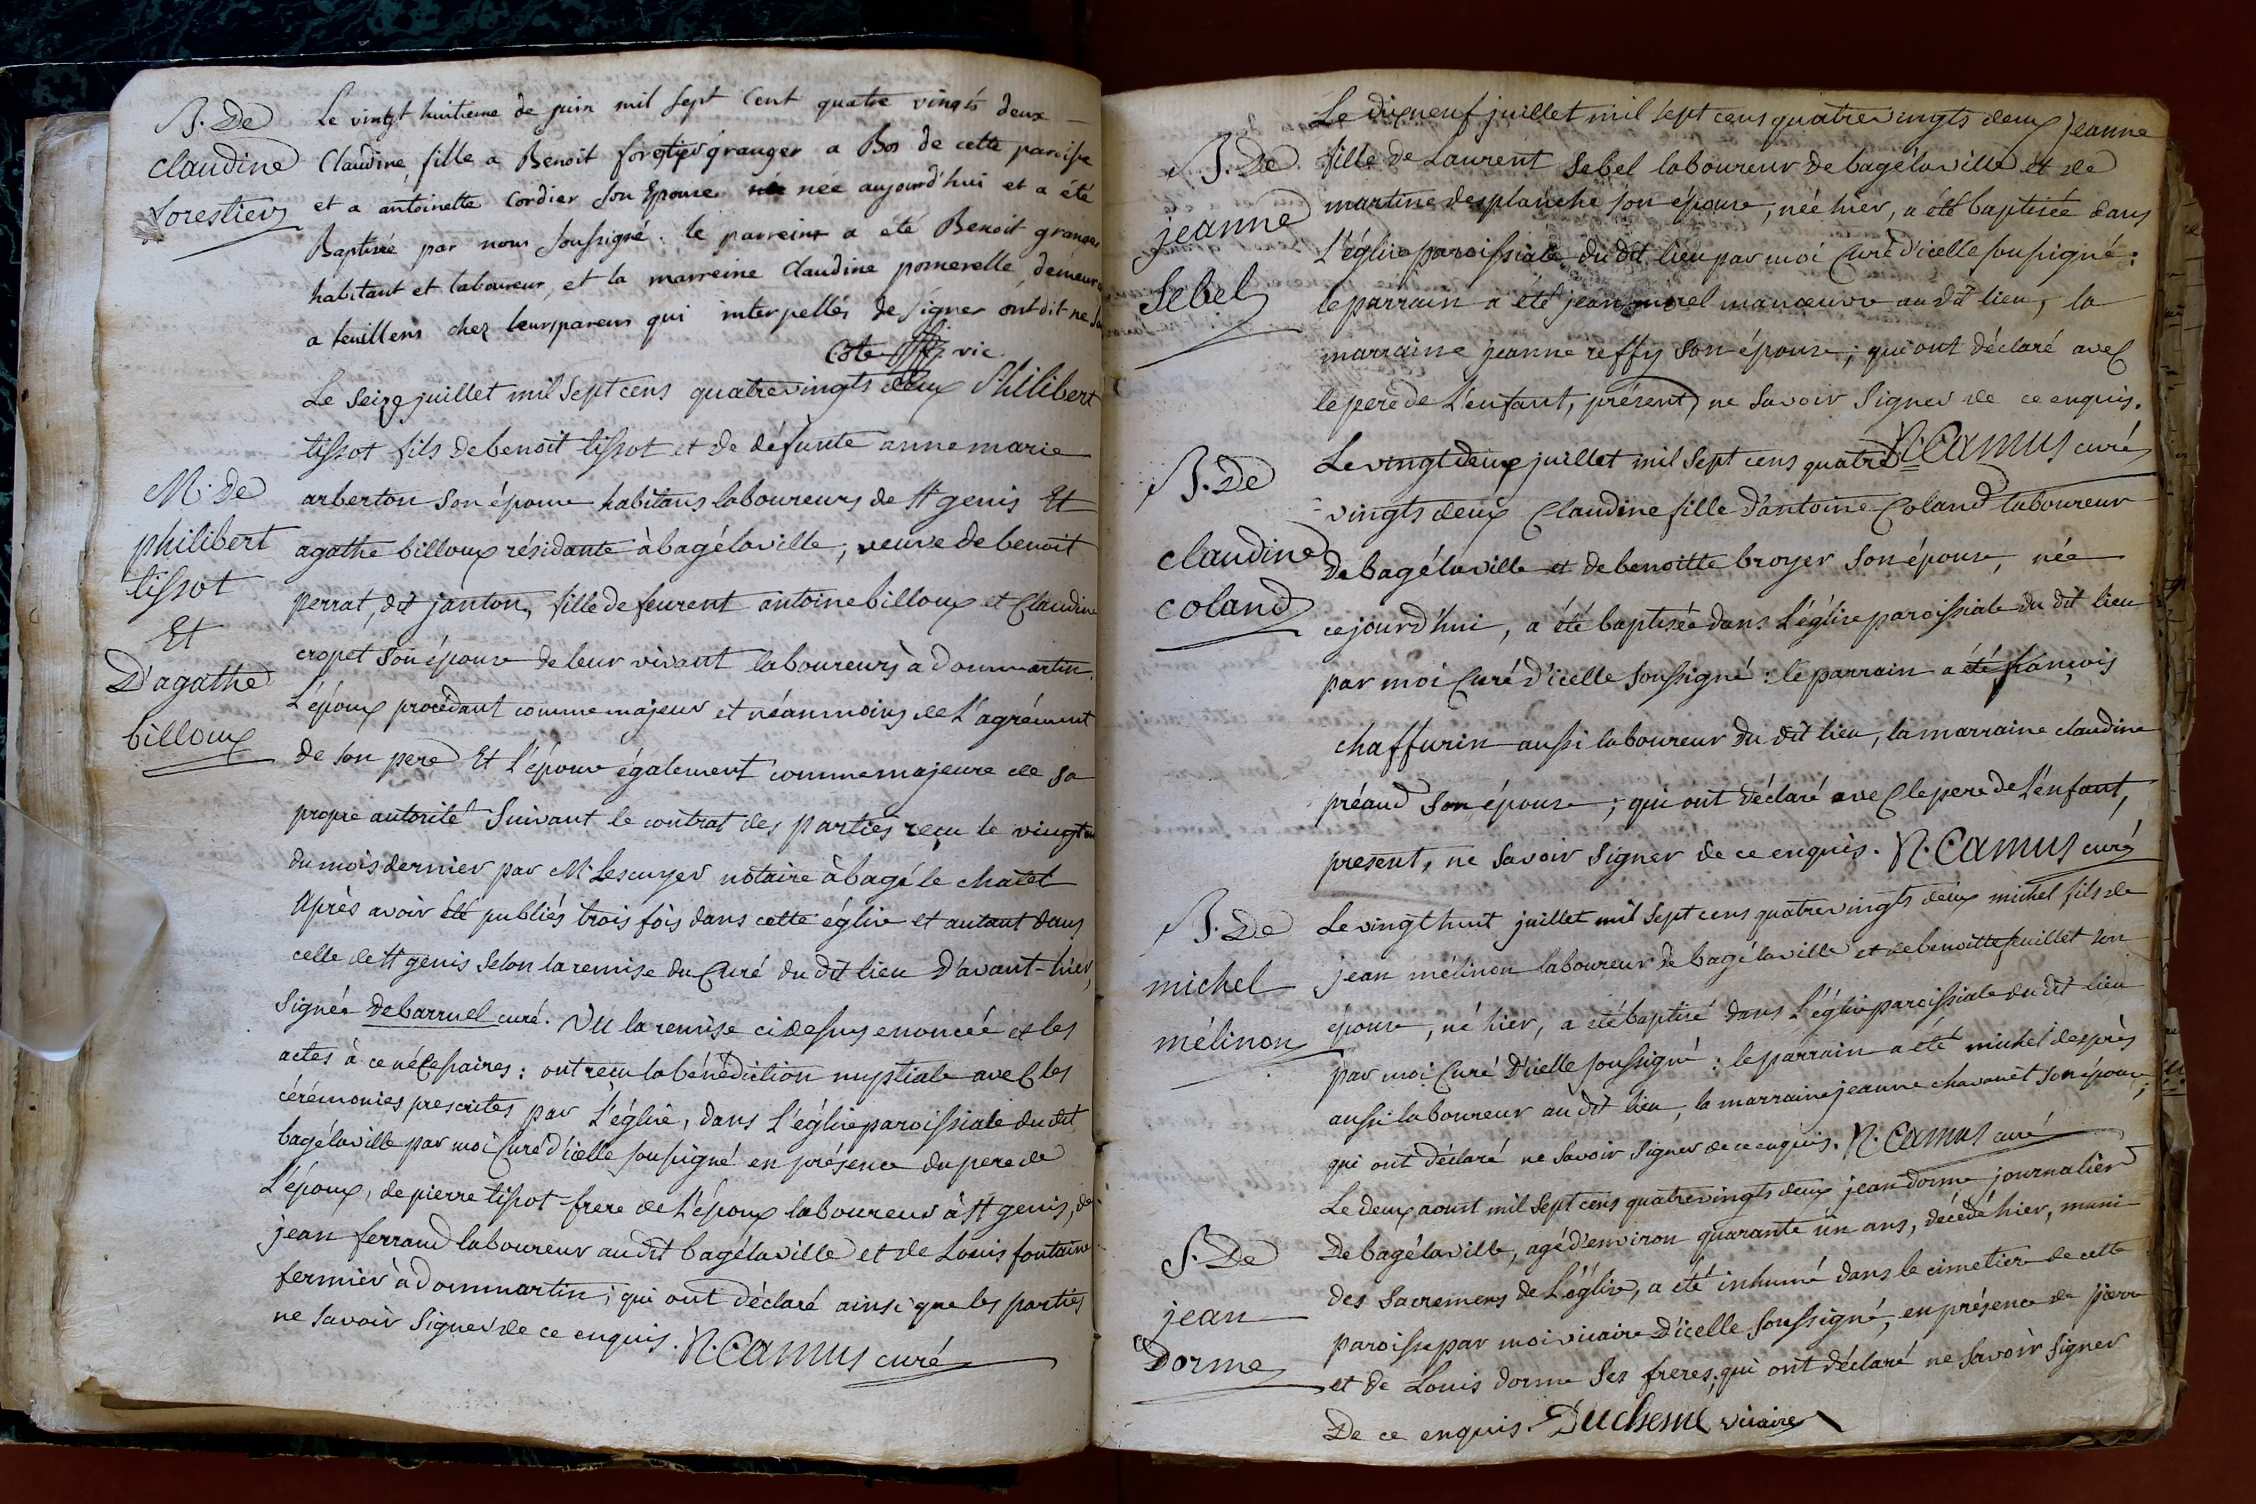 B. De
claudine
forestier
Le vingt huitieme de juin mil sept cent quatre vingts deux
Claudine, fille a Benoit forestier granger a Bos de cette paroisse
et a antoinette Cordier son Epouse née aujourd'hui et a été
Baptisée par nous soussigné. le parrein a été Benoit granger
habitant et laboureur, et la marreine Claudine pomerelle, demeur
a feuillens chez leurs parens qui interpellés de signer ont dit ne
Cote vic.
M. De
philibert
tissot
Et
D'agathe
billoux
Le seize juillet mil sept cens quatrevingts deux Philibert
tissot fils de benoit tissot et de défunte anne marie
arberton son épouse habitans laboureurs de st genis Et
agathe billoux résidante à bagélaville, veuve de benoit
perrat, dit janton, fille de feurent antoine billoux et Claudine
cropet son épouse de leur vivant laboureurs à dommartin.
L'époux procédant comme majeur et néanmoins de L'agrément
de son pere Et l'épouse également comme majeure de sa
propre autorité suivant le contrat des parties reçu le vingt
du mois dernier par Mr Lescuyer notaire à bagé le chatel
Après avoir été publiés trois fois dans cette église et autant dans
celle de st genis selon la remise du Curé du dit lieu D'avant-hier,
signée debarruel curé. Vu la remise ci dessus enoncée et les
actes à ce nécessaires: ont reçu la bénédiction nuptiale avec les
cérémonies prescrites par L'église, dans L'église paroissiale du dit
bagélaville par moi Curé d'icelle soussigné en présence du pere de
L'époux, de pierre tissot frere de L'époux laboureur à st genis, de
jean ferrand laboureur au dit bagélaville et de Louis fontaine
fermier à dommartin; qui ont déclaré ainsi que les parties
ne savoir signer de ce enquis. N. Camus curé
B. De
jeanne
sebel
Le dix neuf juillet mil sept cens quatrevingts deux Jeanne
fille de Laurent sebel laboureur de bagélaville et de
martine desplanche son épouse, née hier, a été baptisée dans
L'église paroissiale du dit lieu par moi Curé d'icelle soussigné:
le parrain a été jean morel manœuvre au dit lieu, la
marraine jeanne reffy son épouse; qui ont déclaré avec
le pere de L'enfant, présent, ne savoir signer de ce enquis.
N. Camus curé
B. De
claudine
coland
Le vingtdeux juillet mil sept cens quatre
vingts deux Claudine fille d'antoine Coland laboureur
De bagélaville et de benoitte broyer son épouse, née
cejourd'hui, a été baptisée dans L'église paroissiale du dit lieu
par moi Curé d'icelle soussigné: le parrain a été françois
chaffurin aussi laboureur du dit lieu, la marraine claudine
préaud son épouse; qui ont déclaré avec le pere de L'enfant,
present, ne savoir signer de ce enquis. N. Camus curé
B. De
michel
mélinon
Le vingt huit juillet mil sept cens quatrevingts deux michel fils de
jean mélinon laboureur de bagélaville et de benoitte feuillet son
épouse, né hier, a été baptisé dans L'église paroissiale du dit lieu
par moi Curé D'icelle soussigné: le parrain a été michel desprès
aussi laboureur au dit lieu, la marraine jeanne chavanet son épouse;
qui ont déclaré ne savoir signer de ce enquis. N. Camus curé
S. De
jean
Dorme
Le deux aoust mil sept cens quatrevingts deux jean dorme journalier
De bagélaville, agé d'environ quarante un ans, décédé hier, muni
des sacremens de L'église, a été inhumé dans le cimetiere de cette
paroisse par moi vicaire D'icelle soussigné, en présence de pierre
et de Louis dorme ses freres, qui ont déclaré ne savoir signer
De ce enquis. Duchesne vicaire